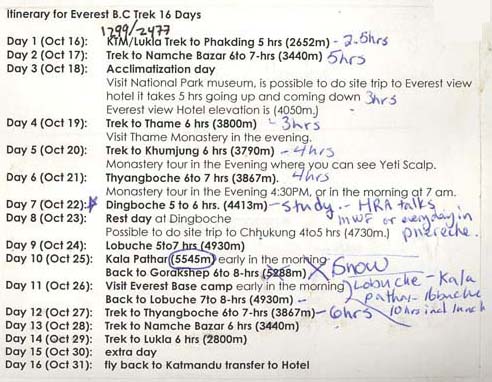 Itinerary for Everest B.C Trek 16 Days
1299/2477
Day 1 (Oct 16): KTM/Lukla Trek to Phakding 5 hrs (2652m) - 2.5hrs
Day 2 (Oct 17): Trek to Namche Bazar 6to 7-hrs (3440m) 5hrs
Day 3 (Oct 18): Acclimatization day
Visit National Park museum, is possible do site trip to Everest view
hotel it takes 5 hrs going up and coming down 3hrs
Everest View Hotel elevation is (4050m.)
Day 4 (Oct 19): Trek to Thame 6 hrs (3800m) - 3hrs
Visit Thame Monastery in the evening.
Day 5 (Oct 20): Trek to Khumjung 6 hrs (3790m) - 4hrs
Monastery tour in the Evening where you can see Yeti Scalp.
Day 6 (Oct 21): Thyangboche 6to7 hrs (3867m). 4hrs
Monastery tour in the Evening 4:30PM, or in the morning at 7 am.
Day 7 (Oct 22): Dingboche 5 to 6 hrs. (4413m) - study - HRA talks
Day 8 (Oct 23): Rest day at Dingboche MWF or everyday in
Possible to do site trip to Chhukung 4to5 hrs (4730m.) phereche.
Day 9 (Oct 24): Lobuche 5to7 hrs (4930m)
Day 10 (Oct 25): Kala Pathar (5545m) early in the morning
Back to Gorakshep 6to 8-hrs (5288m) X Snow
Day 11 (Oct 26): Visit Everest Base camp early in the morning Lobuche - Kala
Back to Lobuche 7to 8-hrs (4930m) - pathar - lobuche
Day 12 (Oct 27): Trek to Thyangboche 6to 7-hrs (3867m) - 6hrs 10 hrs incl lunch
Day 13 (Oct 28): Trek to Namche Bazar 6 hrs (3440m)
Day 14 (Oct 29): Trek to Lukla 6 hrs (2800m)
Day 15 (Oct 30): extra day
Day 16 (Oct 31): fly back to Katmandu transfer to Hotel